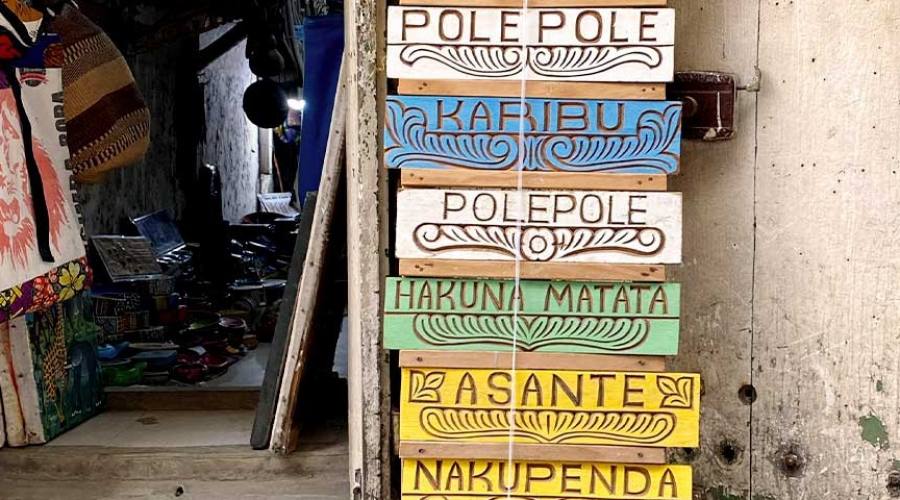 POLE POLE
KARIBU
POLEPOLE
HAKUNA MATATA
ASANTE
NAKUPENDA